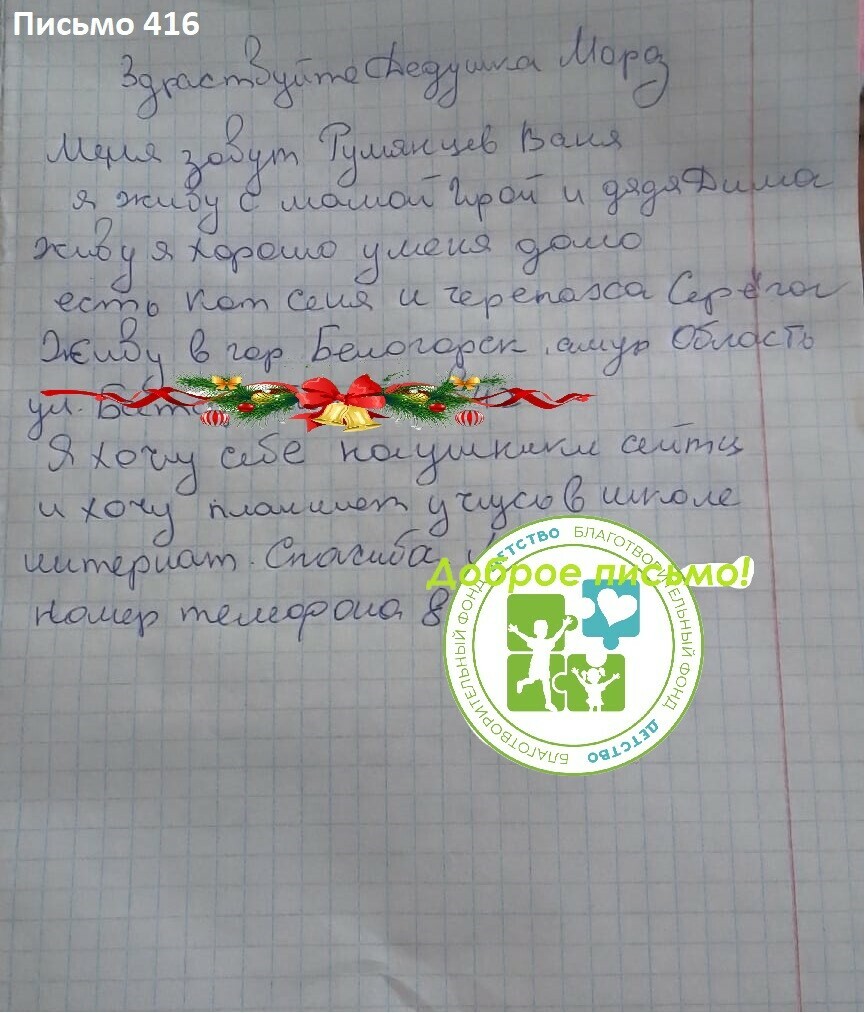 Письмо 416
Здраствуйте Дедушка Мороз
Меня зовут Румянцев Ваня
я живу с мамой Ирой и дядя Дима
живу я хорошо у меня домо
есть кот сеня и черепаха Серёгой
Живу в гор Белогорск, амур Область
ул.
Я хочу себе наушники
и хочу планшет учусь в школе
интернат. Спасиба
Доброе письмо!
номер телефона 8
БЛАГОТВОРИТЕЛЬНЫЙ ФОНД ДЕТСТВО
БЛАГОТВОРИТЕЛЬНЫЙ ФОНД ДЕТСТВО